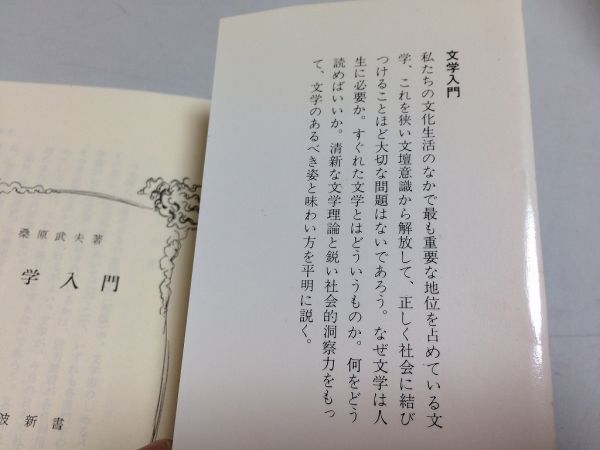 文学入門
私たちの文化生活のなかで最も重要な地位を占めている文
学、これを狭い文壇意識から解放して、正しく社会に結び
つけることほど大切な問題はないであろう。なぜ文学は人
生に必要か。すぐれた文学とはどういうものか。何をどう
読めばいいか。清新な文学理論と鋭い社会的洞察力をもっ
て、文学のあるべき姿と味わい方を平明に説く。
桑原武夫著
学入門
波新書